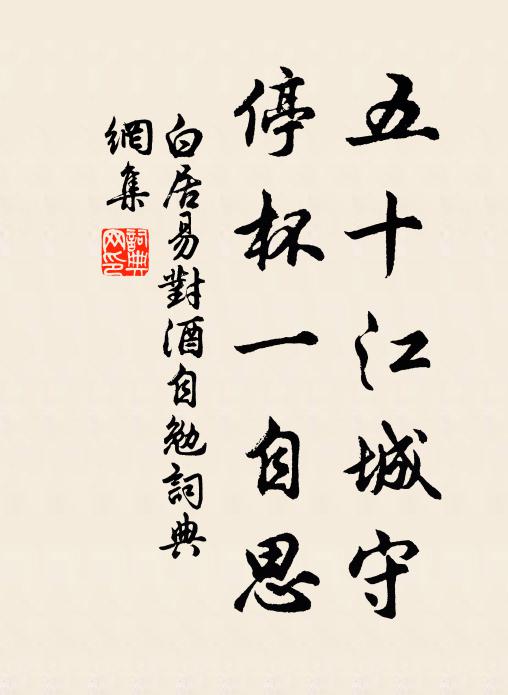 五十江城守
停杯一自思
白居易對酒自勉詞典
網集
詞典
网印